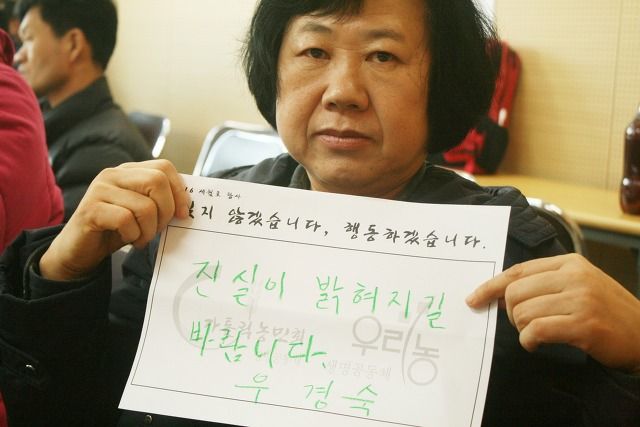 16 세월호 참사
잊지 않겠습니다, 행동하겠습니다.
진실이 밝혀지길
바랍니다.
우경숙
가톨릭농민회
우리농
생명공동체